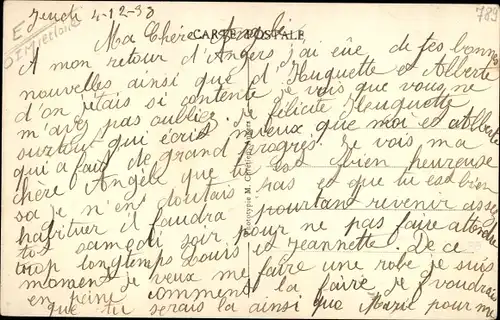 Jeudi 4-12-30
789
CARTE POSTALE
Ma Chère Angèle
A mon retour d'Angers j'ai eûe de tes bonnes
nouvelles ainsi que d'Huguette et Alberte
d'on j'etais si contente je vois que vous ne
m'avez pas oublier. Je félicite Huguette
surtout qui écrit mieux que moi et Alberte
qui a fait de grand progres. Je vois ma
chère Angèle que tu est bien heureuse
sa je n'en doutais pas et que tu est bien
habituer il faudra pourtan revenir assez
tot samedi soir pour ne pas faire attendre
trop longtemps Louis et Jeannette. De ce
moment je veux me faire une robe je suis
en peine comment la faire je voudrais
que tu serais la ainsi que Marie pour me
Phototypie M.